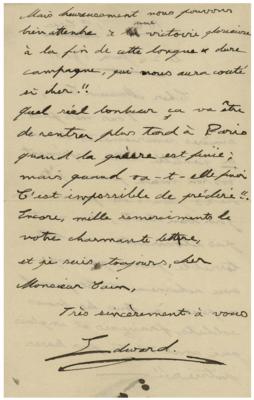 Mais heureusement nous pouvons
bien attendre à une victoire glorieuse
à la fin de cette longue & dure
campagne, qui nous aura couté
si cher!!
Quel réel bonheur ça va être
de rentrer plus tard à Paris
quand la guerre est finie;
mais quand va-t-elle finir
C'est impossible de prédire!!
Encore, mille remerciments de
votre charmante lettre,
et je suis, toujours, cher
Monsieur
Très sincèrement à vous
Edward.